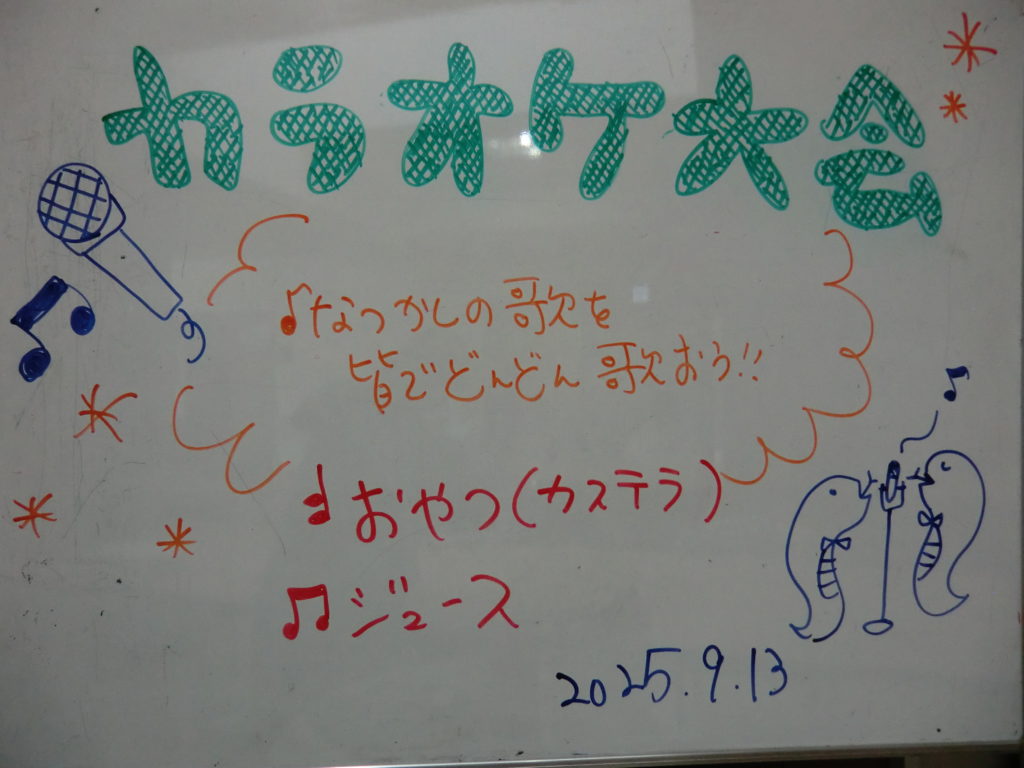 カラオケ大会
♪なつかしの歌を
皆でどんどん歌おう!!
おやつ(カステラ)
♫ジュース
2025.9.13